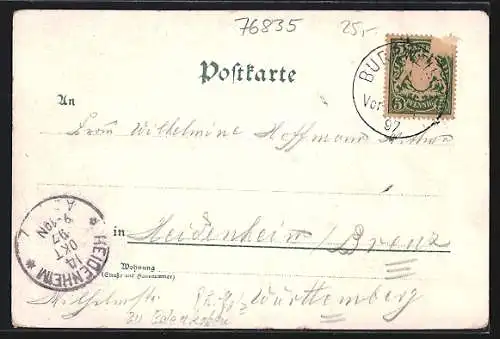 76835 25,-
Postkarte
BUR
Vor
97
5 PFENNIG
An
Frau Wilhelmine Hoffmann
in Heidenheim / Brenz
Wohnung
(Straße und Hausnummer)
Wilhelmstr
Württemberg
HEIDENHEIM
14
OKT
97
9-10N